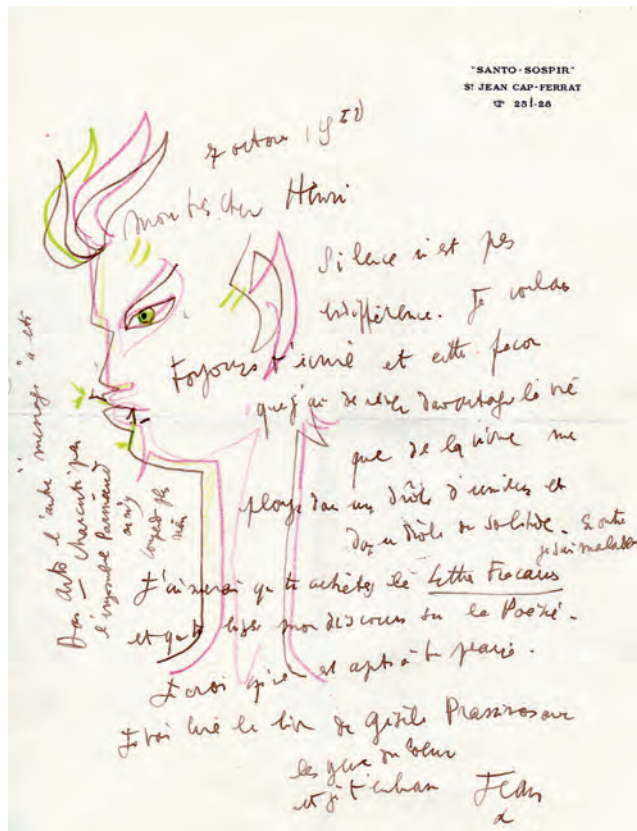 "SANTO-SOSPIR"
ST JEAN CAP-FERRAT
☎ 251-28
7 octobre 19
mon très cher Henri
Silence n'est pas
indifférence. Je voulais
toujours t'écrire et cette façon
que j'ai de rêver davantage la vie
que de la vivre me
plonge dans un drôle d'univers et
dans un drôle de solitude. En outre
je suis malade
J'aimerai que tu achètes les Lettres Françaises
et que tu lises mon discours sur la Poésie.
Je crois qu'il est apte à te plaire.
Je vais lire le livre de Gisèle Prassinos avec
les yeux du coeur
et je t'embrasse Jean
Dans Arts l'autre "message" a été
charcuté par
l'ignoble Parinaud